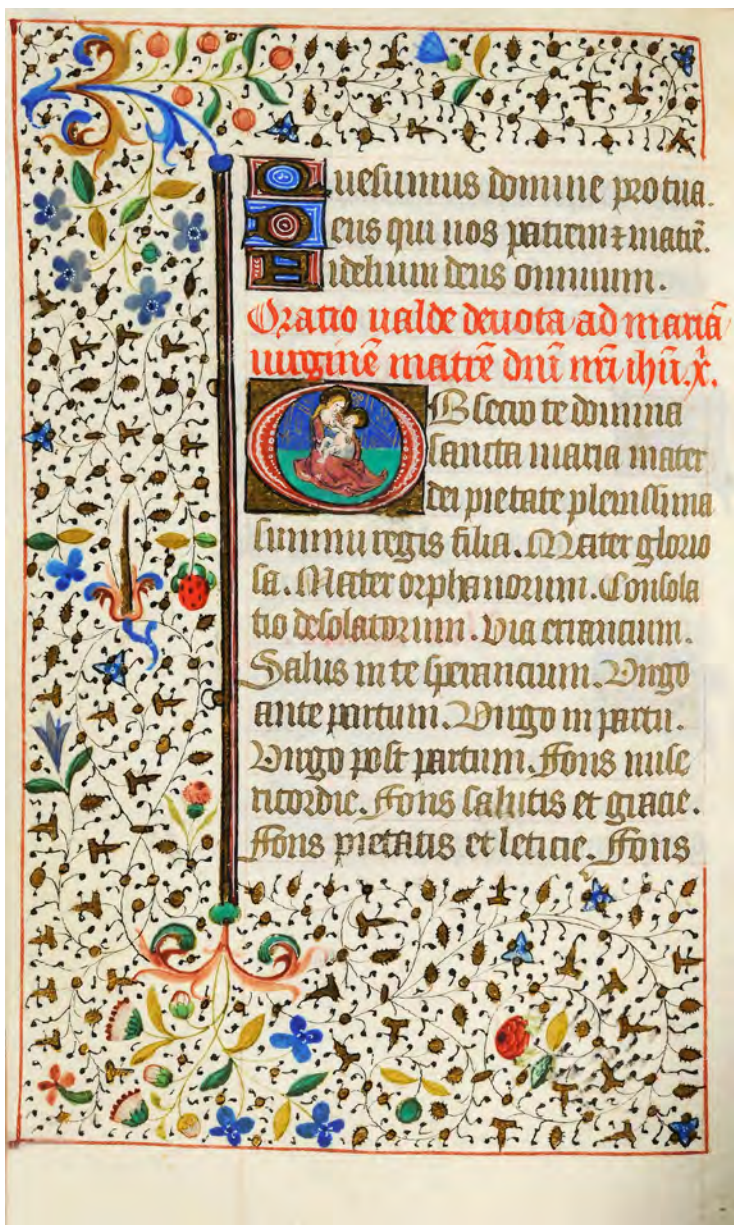 Quesumus domine pro tua.
Deus qui nos patrem ⁊ matrē.
Fidelium deus omnium.
Oratio ualde deuota ad mariā
uirginē matrē dnī nrī ihū.x̄.
OBsecro te domina
sancta maria mater
dei pietate plenissima
summi regis filia. Mater glorio
sa. Mater orphanorum. Consola
tio desolatorum. Via errancium.
Salus in te sperancium. Virgo
ante partum. Virgo in partu.
Virgo post partum. Fons mise
ricordie. Fons salutis et gracie.
Fons pietatis et leticie. Fons